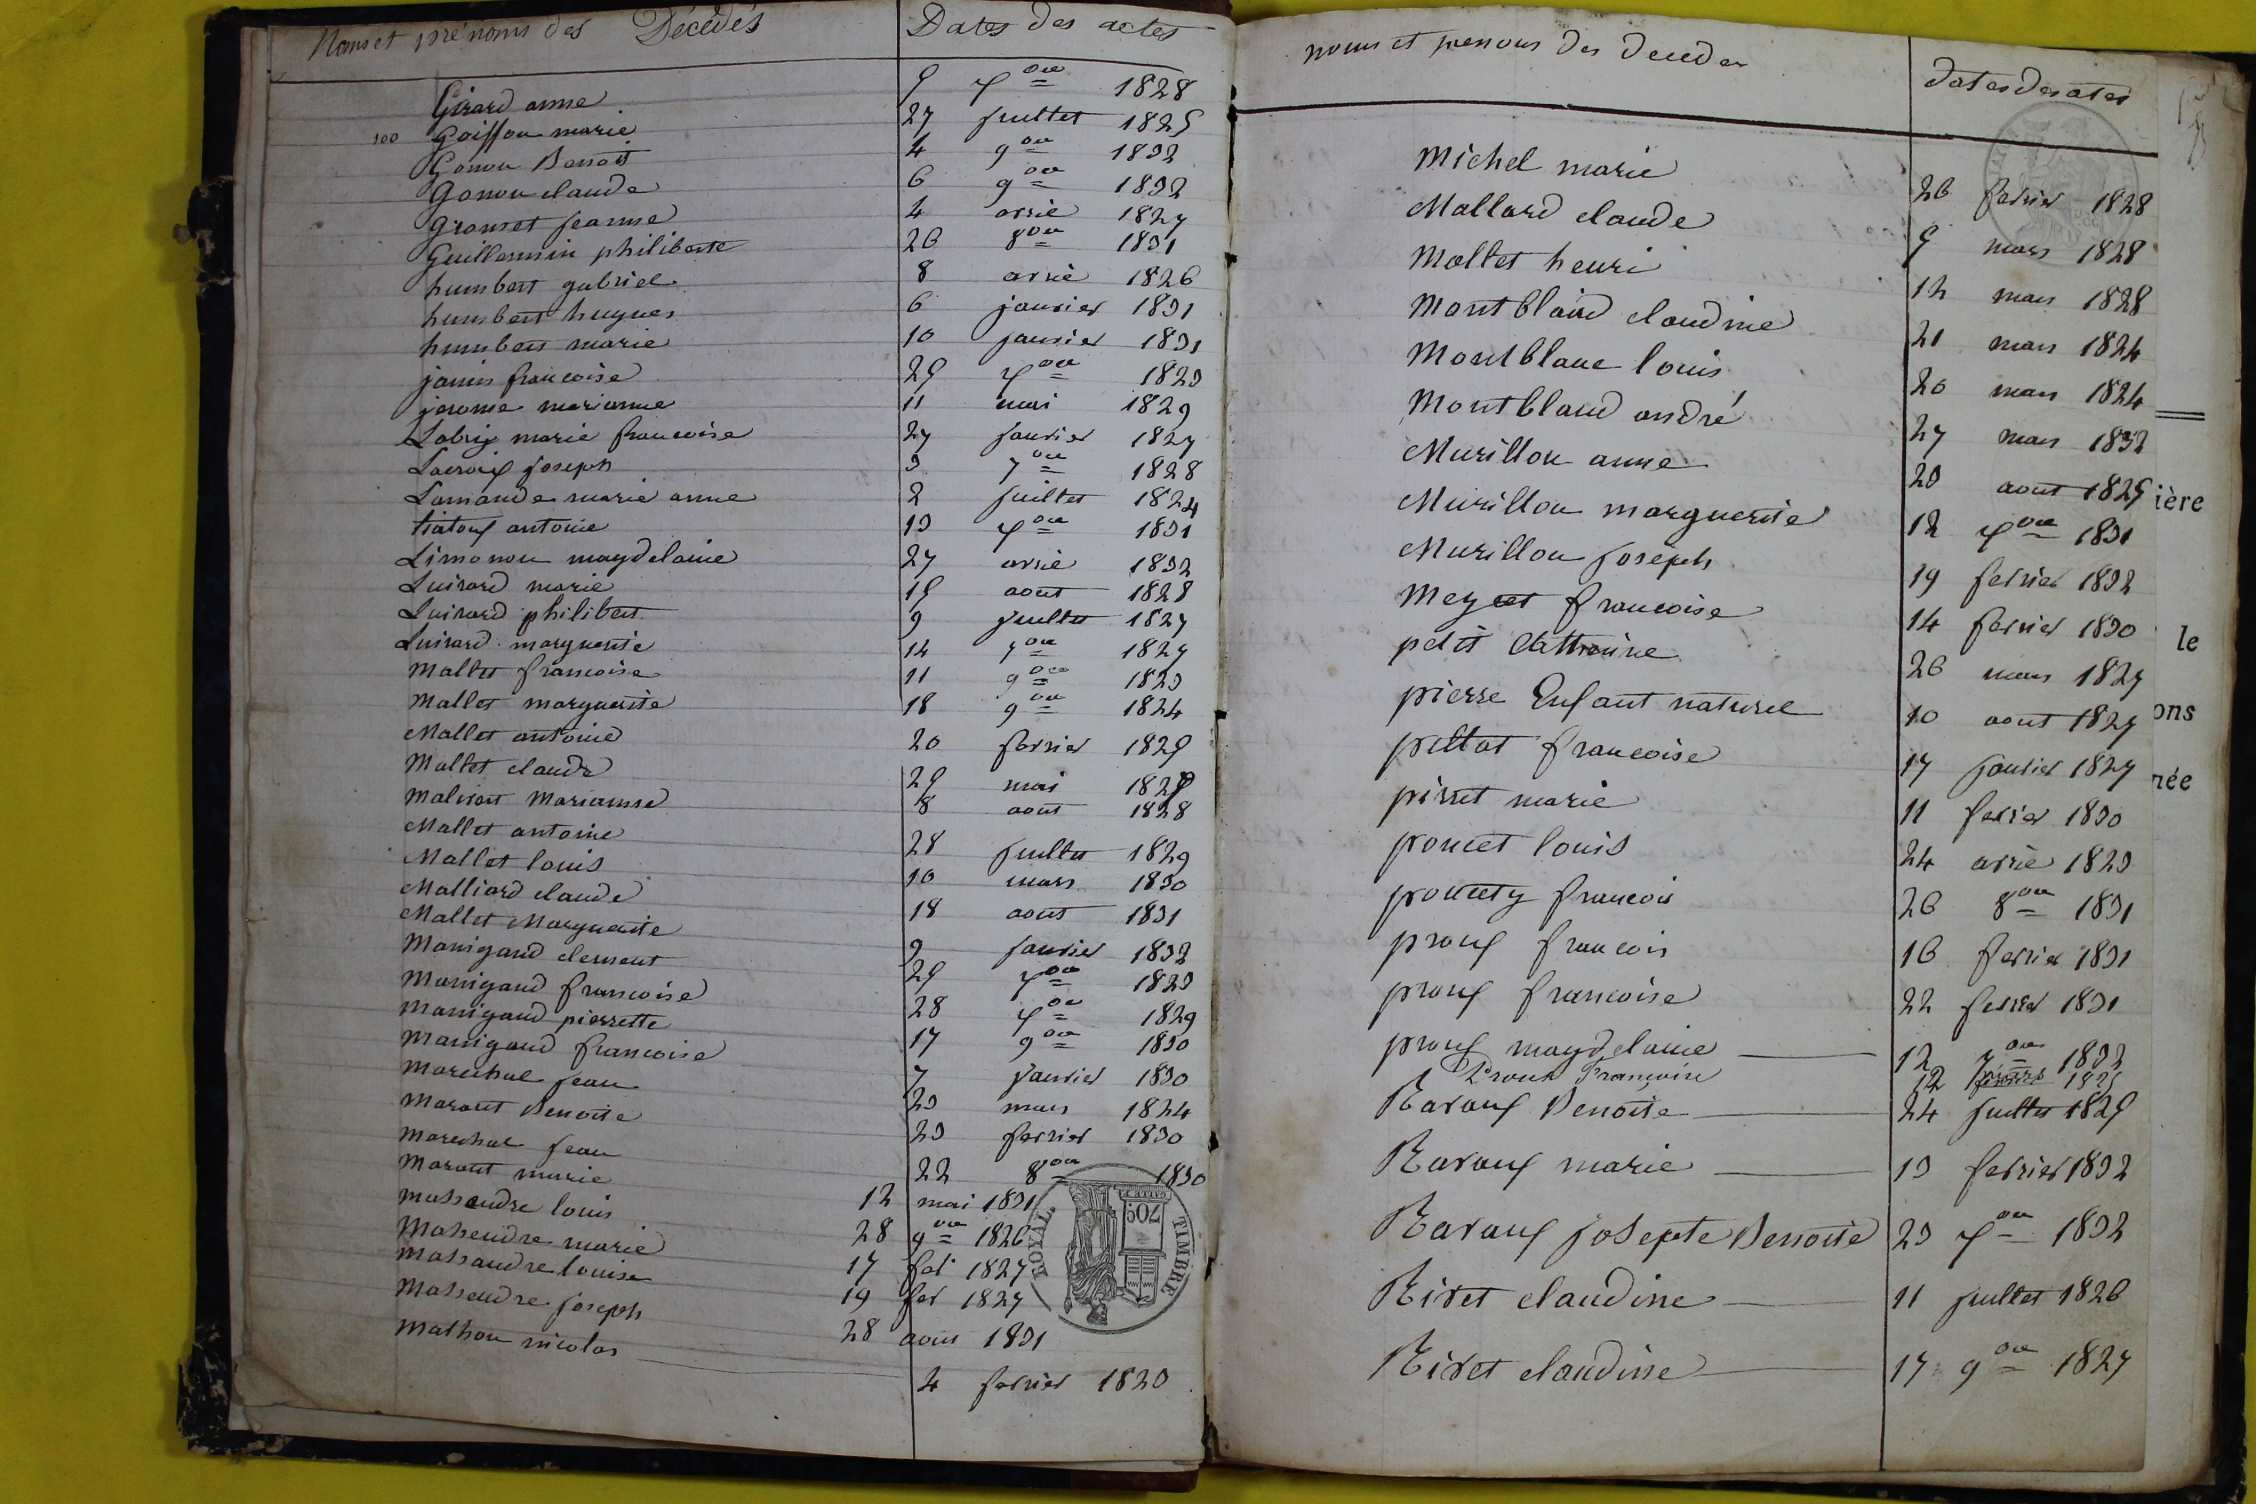 Noms et prénoms des Décédés
Dates des actes
Girard anne 5 xbre 1828
100 Goiffon marie 27 juillet 1825
Gonon Benoit 4 9bre 1832
Gonon claude 6 9bre 1832
Grouset jeanne 4 avril 1827
Guillermin philiberte 26 8bre 1831
humbert gabriel 8 avril 1826
humbert hugues 6 janvier 1831
humbert marie 10 janvier 1831
janin francoise 25 xbre 1823
jerome marianne 11 mai 1829
Labrix marie francoise 27 janvier 1827
Lacroix joseph 3 7bre 1828
Lamande marie anne 2 juillet 1824
antoine 13 xbre 1831
Limonon magdelaine 27 avril 1832
Luirard marie 15 aout 1828
Luirard philibert 9 juillet 1827
Luirard marguerite 14 7bre 1827
Mallet francoise 11 9bre 1823
Mallet marguerite 18 9bre 1824
Mallet antoine 20 fevrier 1825
Mallet claude 25 mai
Marianne 8 aout 1828
Mallet antoine 28 juillet 1829
Mallet louis 10 mars 1830
Malliard claude 18 aout 1831
Mallet Marguerite 9 janvier 1832
Manigand clement 25 xbre 1823
Manigand francoise 28 xbre 1829
Manigand pierrette 17 9bre 1830
Manigand francoise 7 janvier 1830
Marechal jean 23 mars 1824
Marant Benoite 23 fevrier 1830
Marechal jean 22 8bre 1830
Marant marie 12 mai 1831
massandre louis 28 9bre 1826
Massendre marie 17 fev 1827
massandre louise 19 fev 1827
Massendre joseph 28 aout 1831
mathon nicolas 4 fevrier 1823
TIMBRE ROYAL
70c
noms et prenoms des decedes
dates des actes
Michel marie 26 fevrier 1828
Mallard claude 5 mars 1828
Mallet henri 12 mars 1828
Montbland claudine 21 mars 1824
Montblanc louis 20 mars 1824
Montbland andré 27 mars 1832
Murillon anne 23 aout 1825
Murillon marguerite 12 xbre 1831
Murillon joseph 19 fevrier 1832
Meyret francoise 14 fevrier 1830
petit Catherine 26 mars 1827
pierre Enfant naturel 10 aout 1827
pillat francoise 17 janvier 1827
pirret marie 11 fevrier 1830
poncet louis 24 avril 1823
poncety francois 26 8bre 1831
proux francois 16 fevrier 1831
proux francoise 22 fevrier 1831
proux magdelaine 12 7bre 1832
Proux Françoise 12
Ravaux Benoite 24 juillet 1825
Ravaux marie 13 fevrier 1832
Ravaux josepte Benoite 23 xbre 1832
Rivet claudine 11 juillet 1826
Rivet claudine 17 9bre 1827
ière
le
ons
née